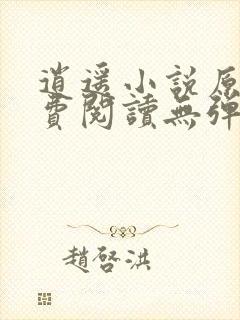 逍遥小說原
費閱讀無彈
趙啓洪